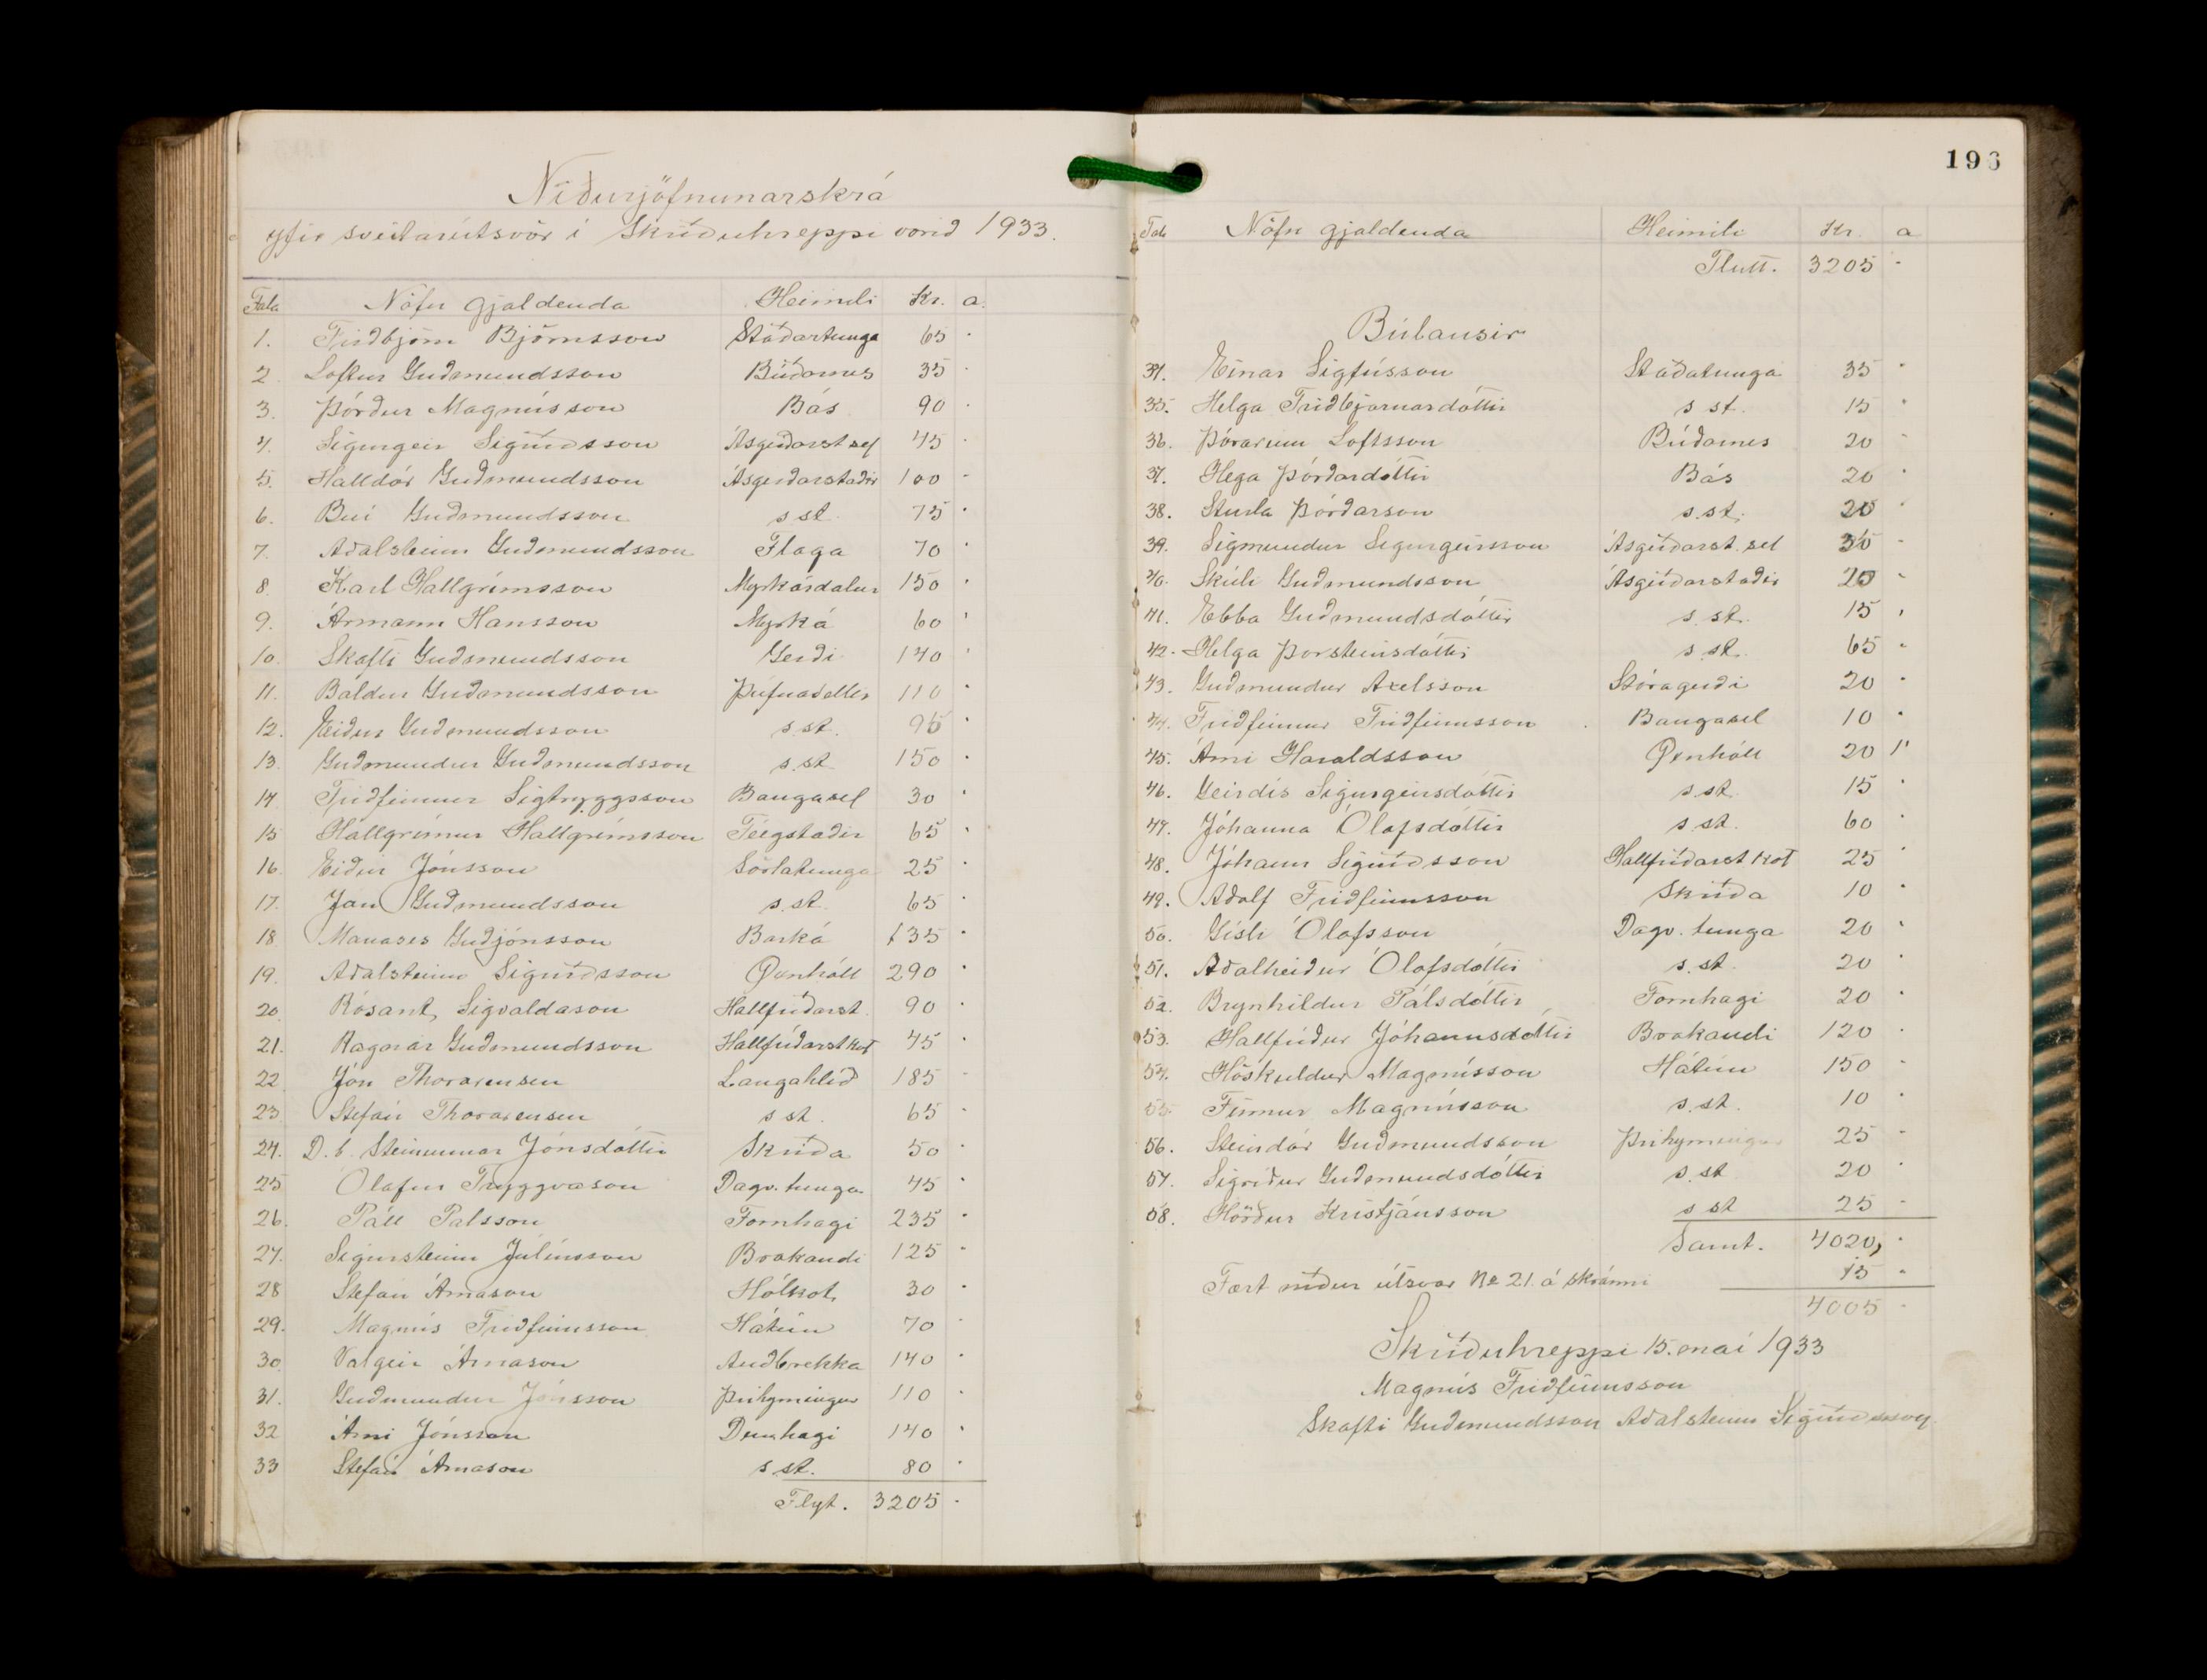 Niðurjöfnunarskrá
yfir sveitarútsvör i Skriðuhreppi vorið 1933.
Tala Nöfn gjaldenda Heimili Kr. a.
1. Friðbjörn Björnsson Staðartunga 65 -
2 Loftur Guðmundsson Búðarnes 35 -
3. Þórður Magnússon Bás 90 -
4. Sigurgeir Sigurðsson Ásgerðarst sel 45 -
5. Halldór Guðmundsson Ásgerðarstaðir 100 -
6. Búi Guðmundsson s st. 75 -
7. Aðalsteinn Guðmundsson Flaga 70 -
8. Karl Hallgrímsson Myrkárdalur 150 -
9. Ármann Hansson Myrká 60 -
10. Skafti Guðmundsson Gerði 140 -
11. Baldur Guðmundsson Þúfnavellir 110 -
12. Eiður Guðmundsson s.st. 95 -
13. Guðmundur Guðmundsson s.st. 150 -
14. Friðfinnur Sigtryggsson Baugasel 30 -
15 Hallgrímur Hallgrímsson Féegstaðir 65 -
16. Eiður Jónsson Sörlatunga 25 -
17. Jón Guðmundsson s.st. 65 -
18. Manases Guðjónsson Barká 135 -
19. Aðalsteinn Sigurðsson Öxnhóll 290 -
20. Rósant Sigvaldason Hallfríðarst. 90 -
21. Ragnar Guðmundsson Hallfríðarst kot 45 -
22. Jón Thorarensen Langahlíð 185 -
23. Stefán Thorarensen s st. 65 -
24. D. b. Steinunnar Jónsdóttir Skriða 50 -
25 Ólafur Tryggvason Dagv. tunga 45 -
26. Páll Pálsson Fornhagi 235 -
27. Sigursteinn Júlíusson Brakandi 125 -
28 Stefán Árnason Hólkot 30 -
29. Magnús Friðfinnsson Hátún 70 -
30. Valgeir Árnason Auðbrekka 140 -
31. Guðmundur Jónsson Þríhyrningur 110 -
32 Árni Jónsson Dunhagi 140 -
33 Stefán Árnason s.st. 80 -
Flyt. 3205 -
196
Tala Nöfn gjaldenda Heimili Kr. a
Flutt. 3205 -
Búlausir
34. Einar Sigfússon Staðatunga 35 -
35. Helga Friðbjarnardóttir s st. 15 -
36. Þórarinn Loftsson Búðarnes 20 -
37. Hega Þórðardóttir Bás 20 -
38. Sturla Þórðarson s.st. 20 -
39. Sigmundur Sigurgeirsson Ásgerðarst. sel 30 -
40. Skúli Guðmundsson Ásgerðarstaðir 25 -
41. Ebba Guðmundsdóttir s. st. 15 -
42. Helga Þorsteinsdóttir s st. 65 -
43. Guðmundur Axelsson Stóragerði 20 -
44. Friðfinnur Friðfinnsson Baugasel 10 -
45. Árni Haraldsson Öxnhóll 20 "
46. Geirdís Sigurgeirsdóttir s st. 15 -
47. Jóhanna Ólafsdóttir s.st. 60 -
48. Jóhann Sigurðsson Hallfríðarst kot 25 -
49. Aðolf Friðfinnsson Skriða 10 -
50. Gísli Ólafsson Dagv. tunga 20 -
51. Aðalheiður Ólafsdóttir s.st. 20 -
52. Brynhildur Pálsdóttir Fornhagi 20 -
53. Hallfríður Jóhannsdóttir Brakandi 120 -
54. Höskuldur Magnússon Hátún 150 -
55. Finnur Magnússon s.st. 10 -
56. Steindór Guðmundsson Þríhyrningur 25 -
57. Sigríður Guðmundsdóttir s. st 20 -
58. Hörður Kristjánsson s st 25 -
Samt. 4020, -
Fært niður útsvar No 21. á skránni 15 -
4005 -
Skriðuhreppi 15. maí 1933
Magnús Friðfinnsson
Skafti Guðmundsson Aðalsteinn Sigurðsson